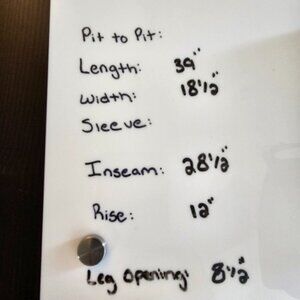 Pit to Pit:
Length: 39"
Width: 18 1/2"
Sleeve:
Inseam: 28 1/2"
Rise: 12"
Leg Opening: 8 1/2"